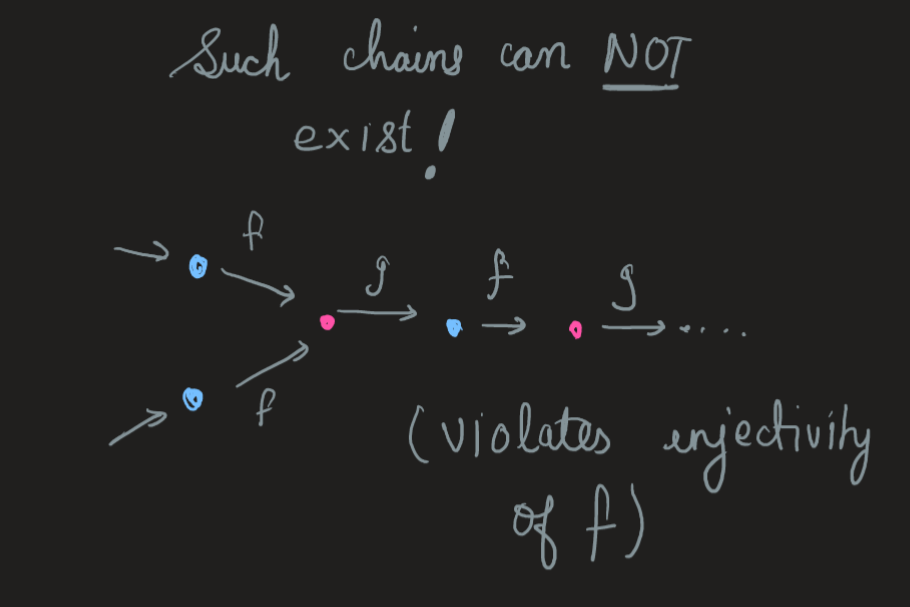 Such chains can NOT
exist!
f
g
f
g
f
(violates injectivity
of f)